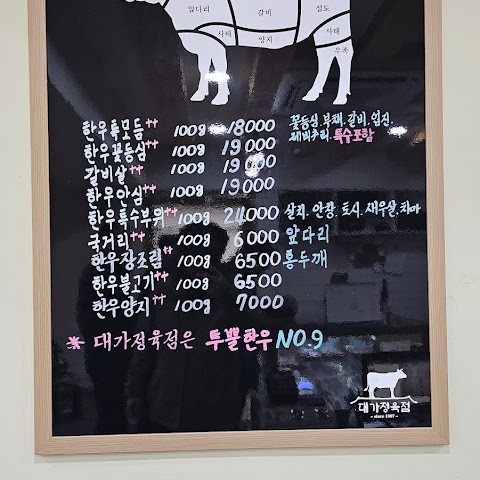 앞다리
갈비
설도
사태
양지
사태
우족
한우특모듬++ 100g 18000 꽃등심.부채.갈비.업진.
제비추리.특수포함
한우꽃등심++ 100g 19000
갈비살++ 100g 19000
한우안심++ 100g 19000
한우특수부위++ 100g 24000 살치.안창.토시.새우살.치마
국거리++ 100g 6000 앞다리
한우장조림++ 100g 6500 홍두깨
한우불고기++ 100g 6500
한우양지++ 100g 7000
* 대가정육점은 투뿔한우 NO.9
대가정육점
- since 1987 -